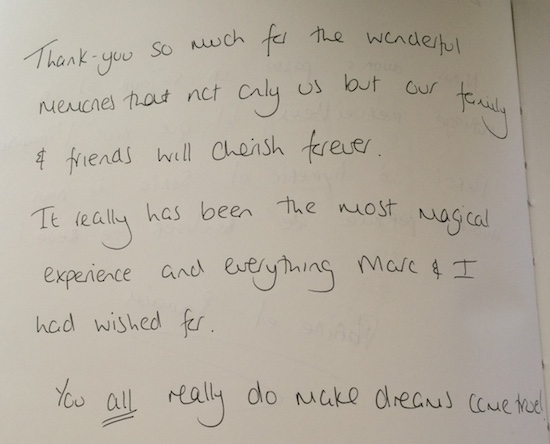 Thank-you so much for the wonderful
memories that not only us but our family
& friends will cherish forever.
It really has been the most magical
experience and everything Marc & I
had wished for.
You all really do make dreams come true!